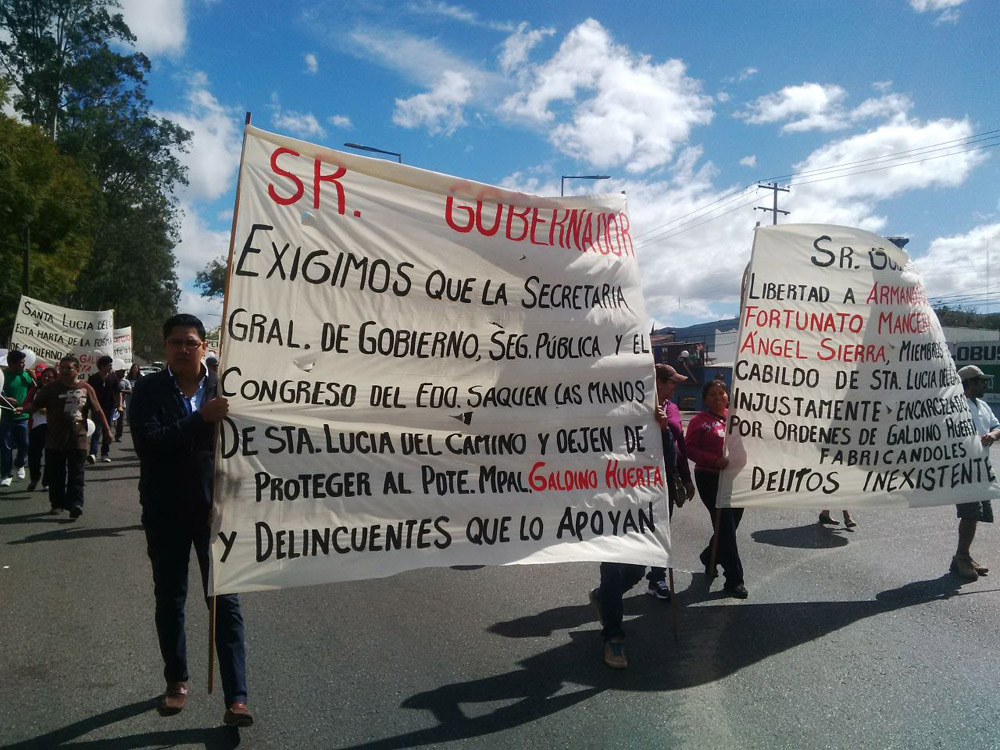 SR. GOBERNADOR
EXIGIMOS QUE LA SECRETARIA
GRAL. DE GOBIERNO, SEG. PÚBLICA Y EL
CONGRESO DEL EDO. SAQUEN LAS MANOS
DE STA. LUCIA DEL CAMINO Y DEJEN DE
PROTEGER AL PDTE. MPAL. GALDINO HUERTA
Y DELINCUENTES QUE LO APOYAN
SR.
LIBERTAD A
FORTUNATO
ÁNGEL SIERRA,
CABILDO DE STA. LUCIA DEL
INJUSTAMENTE
POR ORDENES DE GALDINO
FABRICANDOLES
DELITOS INEXISTENTE
SANTA LUCIA DEL
ESTA HARTA DE LA
DE GOBIERNO DE